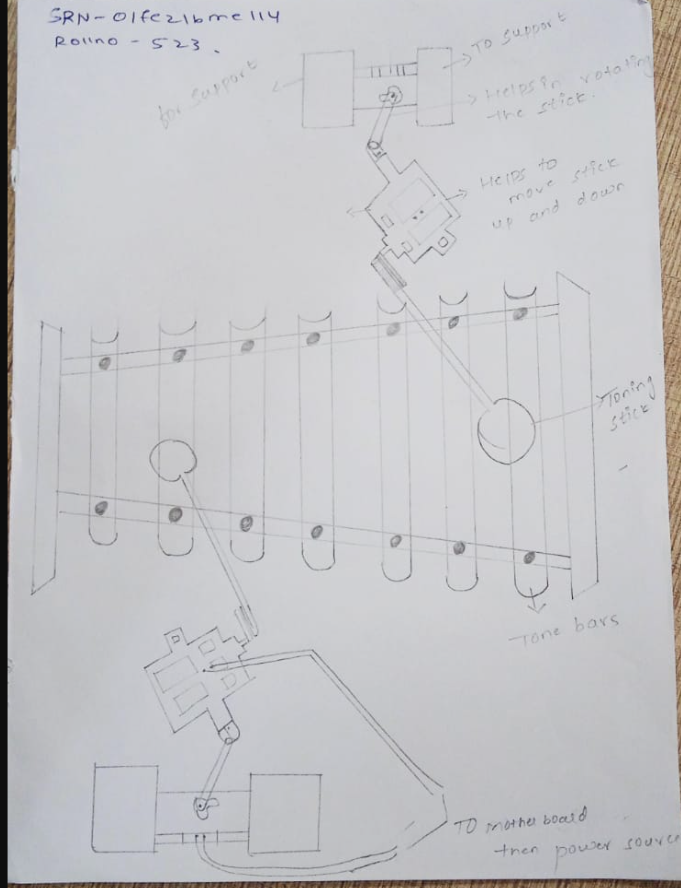 SRN-01fe21bme114
Rollno - 523.
for support
To support
Helps in rotating
the stick.
Helps to
move stick
up and down
Toning
stick
Tone bars
To motherboard
then power source